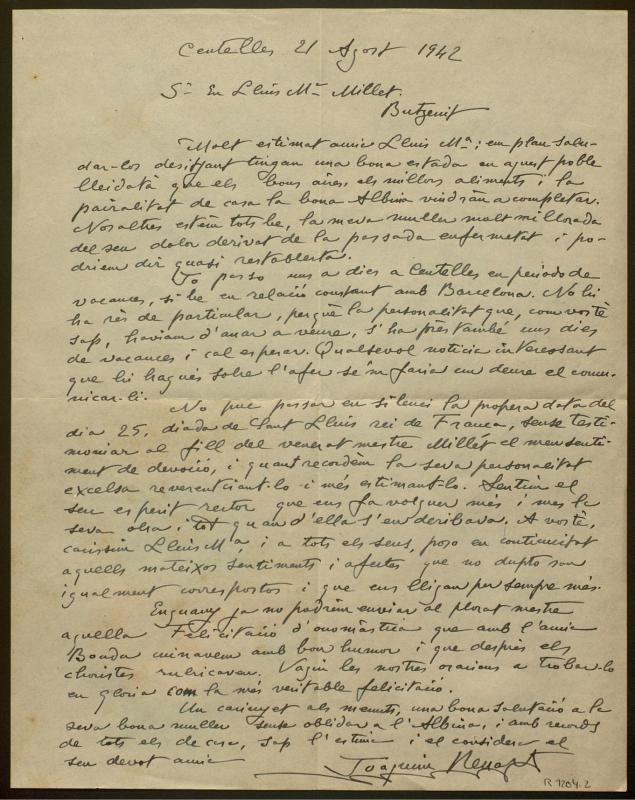 Centelles 21 Agost 1942
Sr. En Lluis Mª Millet.
Butzenit
Molt estimat amic Lluis Mª; em plau salu-
dar-los desitjant tingan una bona estada en aquet poble
lleidatà que els bons aires, els millors aliments i la
pairalitat de casa la bona Albina vindràn a completar.
Nosaltres estèm tots be, la meva muller molt millorada
del seu dolor derivat de la passada enfermetat i po-
driem dir quasi restablerta.
Jo passo uns dies a Centelles en periodo de
vacances, si be en relació constant amb Barcelona. No hi
ha rès de particular, perquè la personalitat que, com vostè
sap, haviam d'anar a veure, s'ha près també uns dies
de vacances i cal esperar. Qualsevol noticia interessant
que hi haguès sobre l'afer se'm faria un deure el comu-
nicar-li.
No puc passar en silenci la propera data del
dia 25, diada de Sant Lluis rei de França, sense testi-
moniar al fill del venerat mestre Millet el meu senti-
ment de devoció, i quant recordèm la seva personalitat
excelsa reverenciant-lo i més estimant-lo. Sentim el
seu esperit rector que ens fa volguer més i mes la
seva obra i tot quan d'ella s'en deribava. A vostè,
carissim Lluis Mª, i a tots els seus, poso en continuitat
aquells mateixos sentiments i afectes que no dupto son
igualment correspostos i que ens lligan per sempre més.
Enguany ja no podrèm enviar al plorat mestre
aquella Felicitació d'onomàstica que amb l'amic
Boada cuinavem amb bon humor i que després els
choristes rubricaven. Vagin les nostres oracions a trobar-lo
en gloria com la més veritable felicitació.
Un carinyet als menuts, una bona salutació a la
seva bona muller sense oblidar a l'Albina, i amb records
de tots els de casa, sap l'estima i el considera el
seu devot amic
Joaquim Renart
R 9204-2